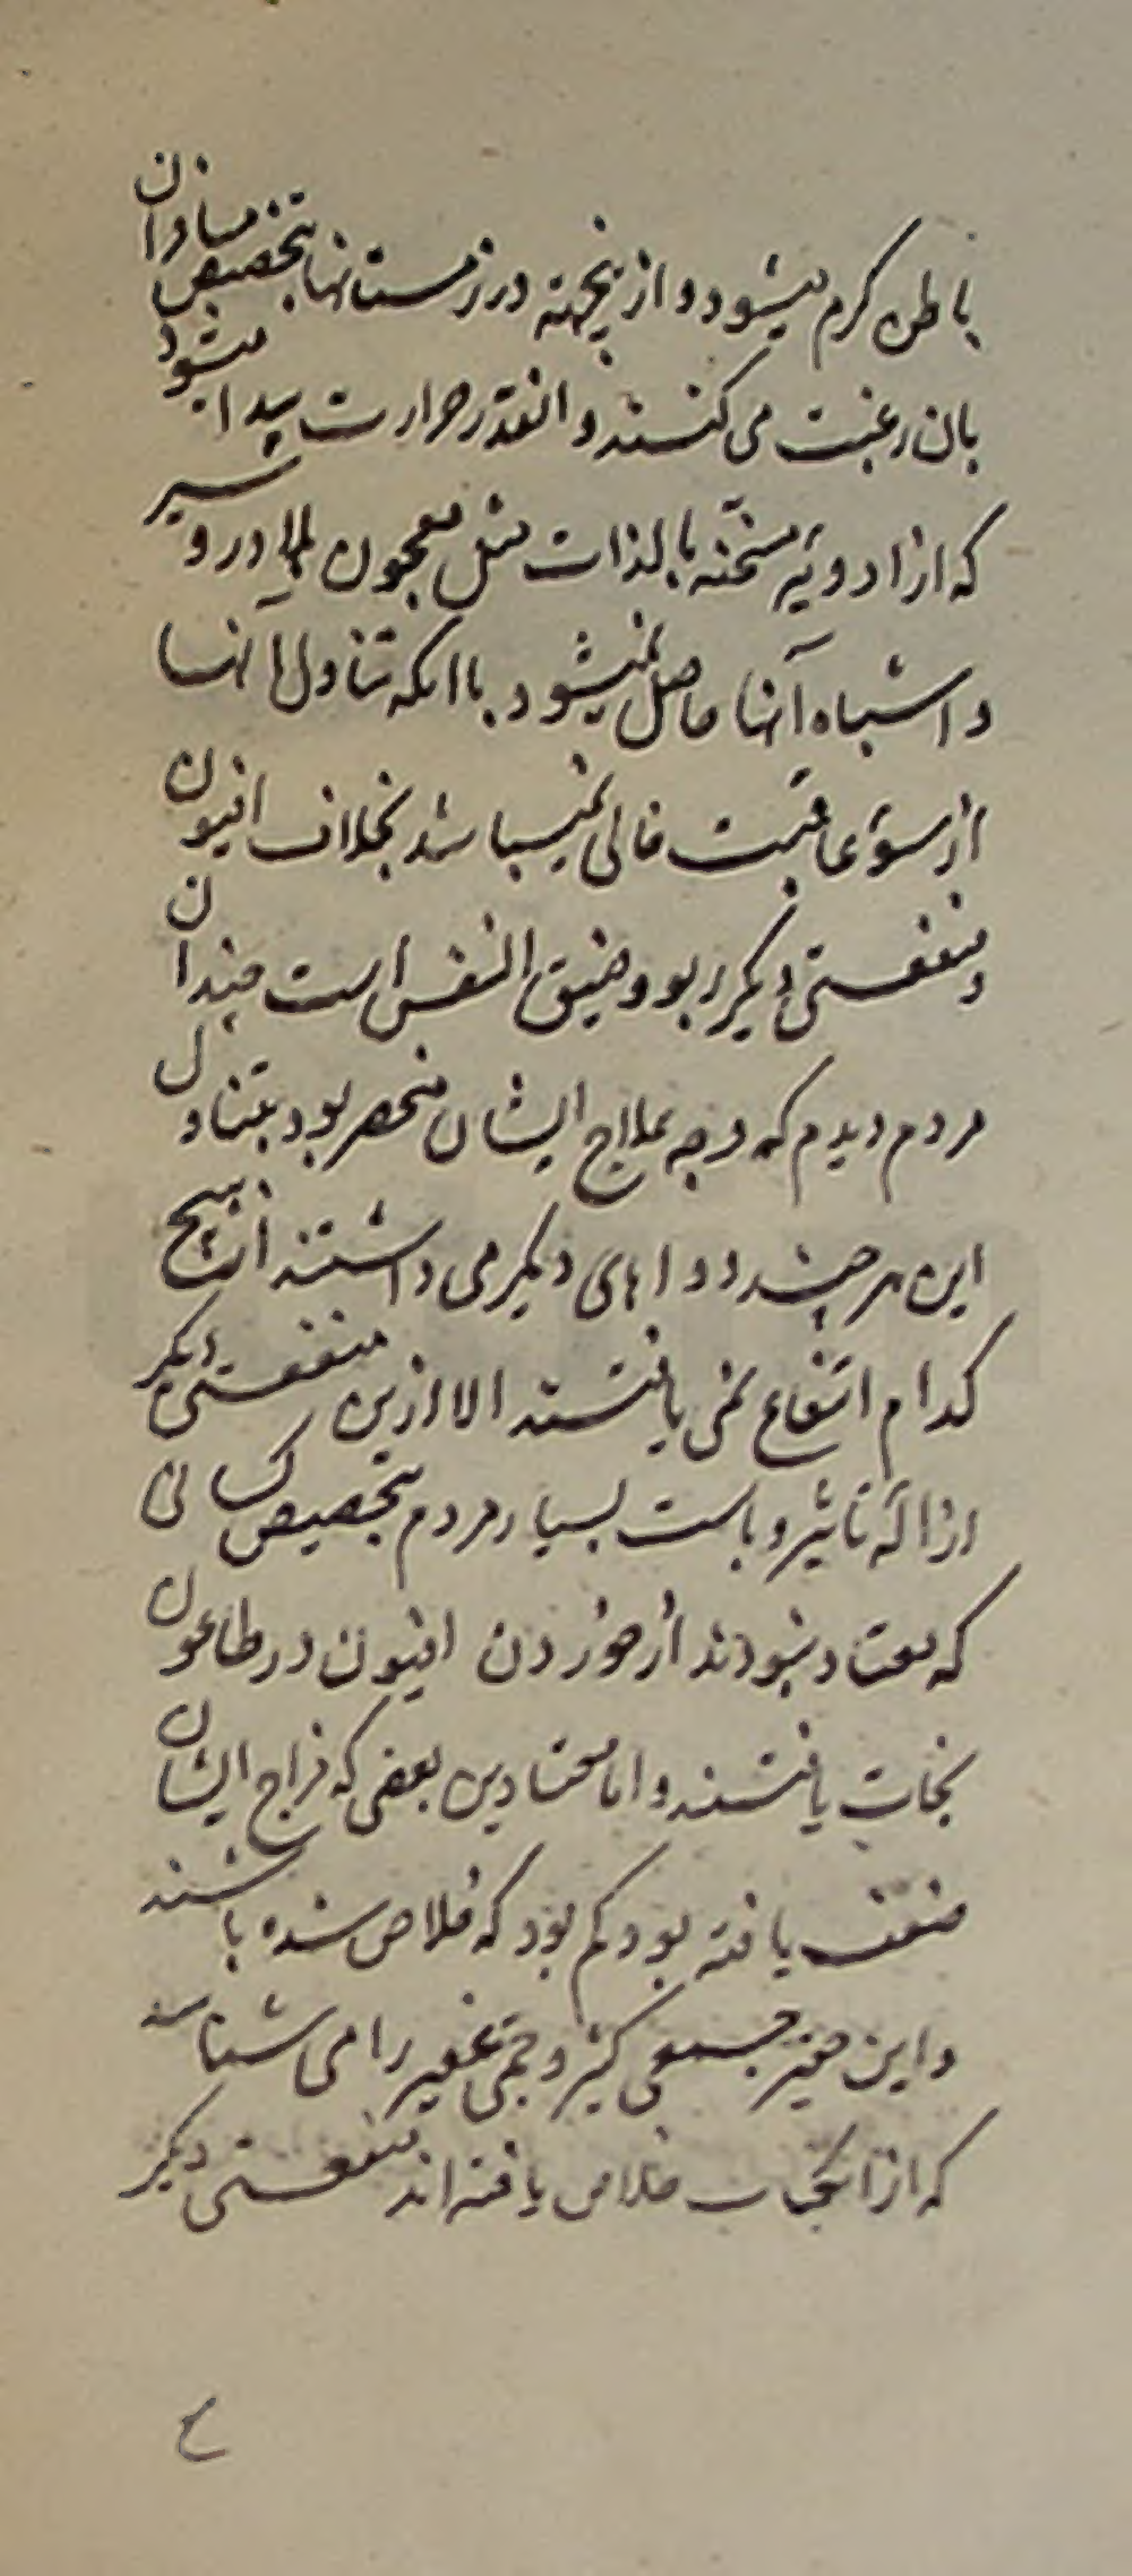 باطن کرم میشود و از ینجهته در زمستانها بتخصیص مسافران
بان رغبت می کنند و انقدر حرارت پیدا میشود
که از ادویهٔ مسخنه بالذات مثل معجون بلادر و سیر
و اشباه آنها حاصل نمیشود باانکه تناول آنها
از سوء عاقبت خالی نمیباشد بخلاف افیون
و منفعتی دیکر ربو و ضیق النفس است چندان
مردم دیدم که وجه علاج ایشان منحصر بود بتناول
این هر چند دواهای دیکر می داشتند از هیچ
کدام انتفاع نمی یافتند الا ازین منفعتی دیکر
ازاله تاثیر وباست بسیار مردم بتخصیص کسانی
که معتاد نبودند از خوردن افیون در طاعون
نجات یافتند و اما معتادین بعضی که مزاج ایشان
ضعف یافته بود کم بود که خلاص شده باشند
و این حقیر جمعی کثیر و جمی غفیر را می شناسد
که از انجهات خلاص یافته اند منفعتی دیکر
۴